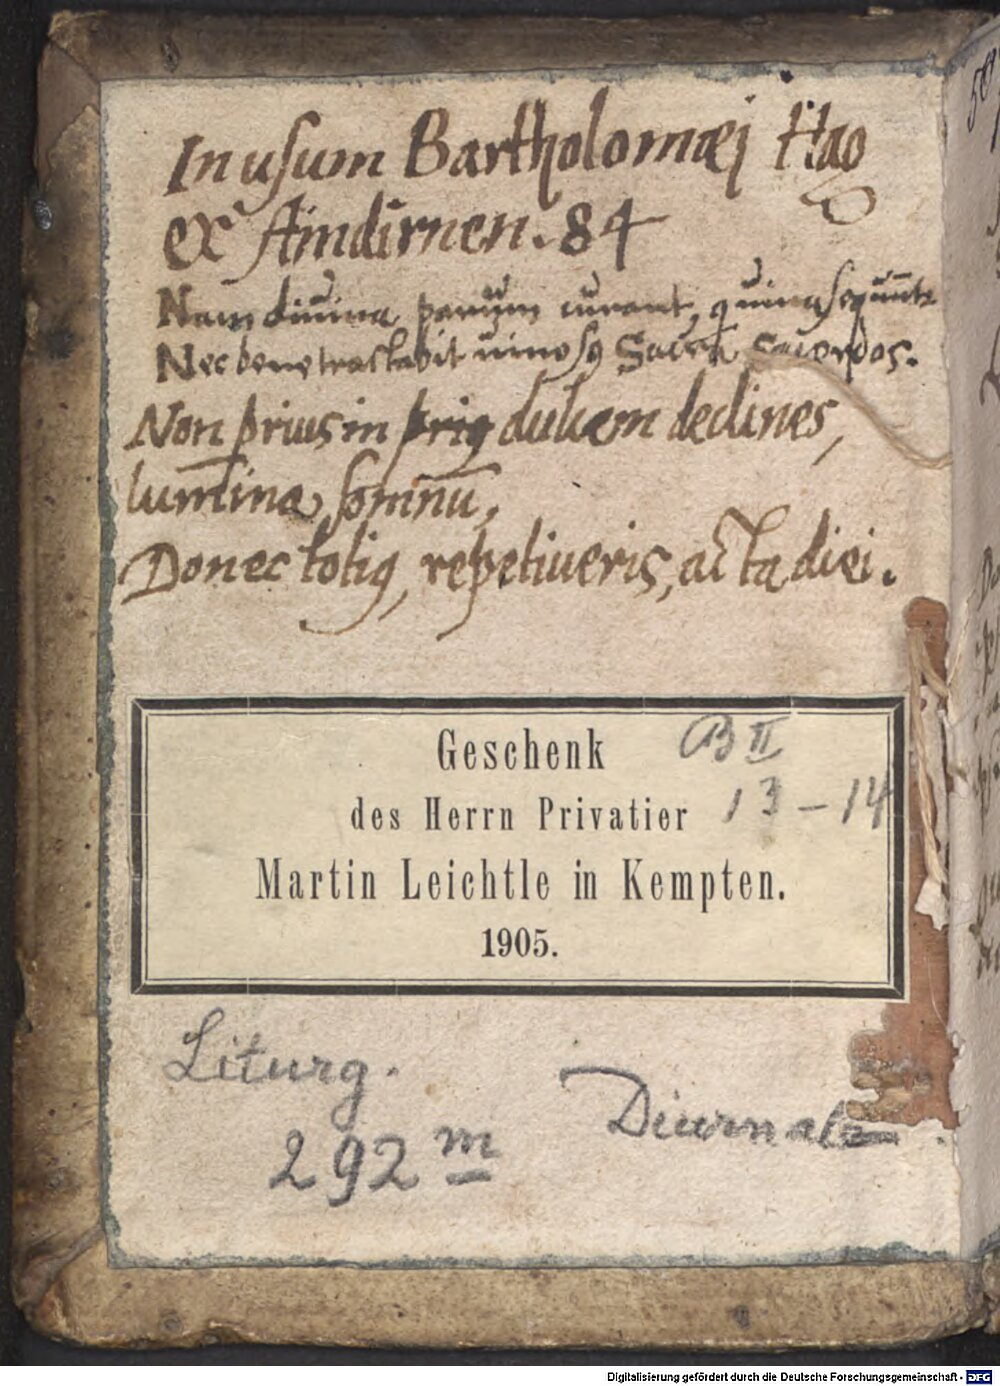 In usum Bartholomæi Hag
ex Aindirnen. 84
Nam diuina parum curant, qui uina sequunt
Nec bene tractabit uinosꝰ Sacra Sacerdos.
Non prius in dulcem declines,
lumina, somnū,
Donec totiꝰ, repetiueris, acta diei.
Geschenk
des Herrn Privatier
Martin Leichtle in Kempten.
1905.
B II
13-14
Liturg.
292 m
Diurnale
Digitalisierung gefördert durch die Deutsche Forschungsgemeinschaft - DFG